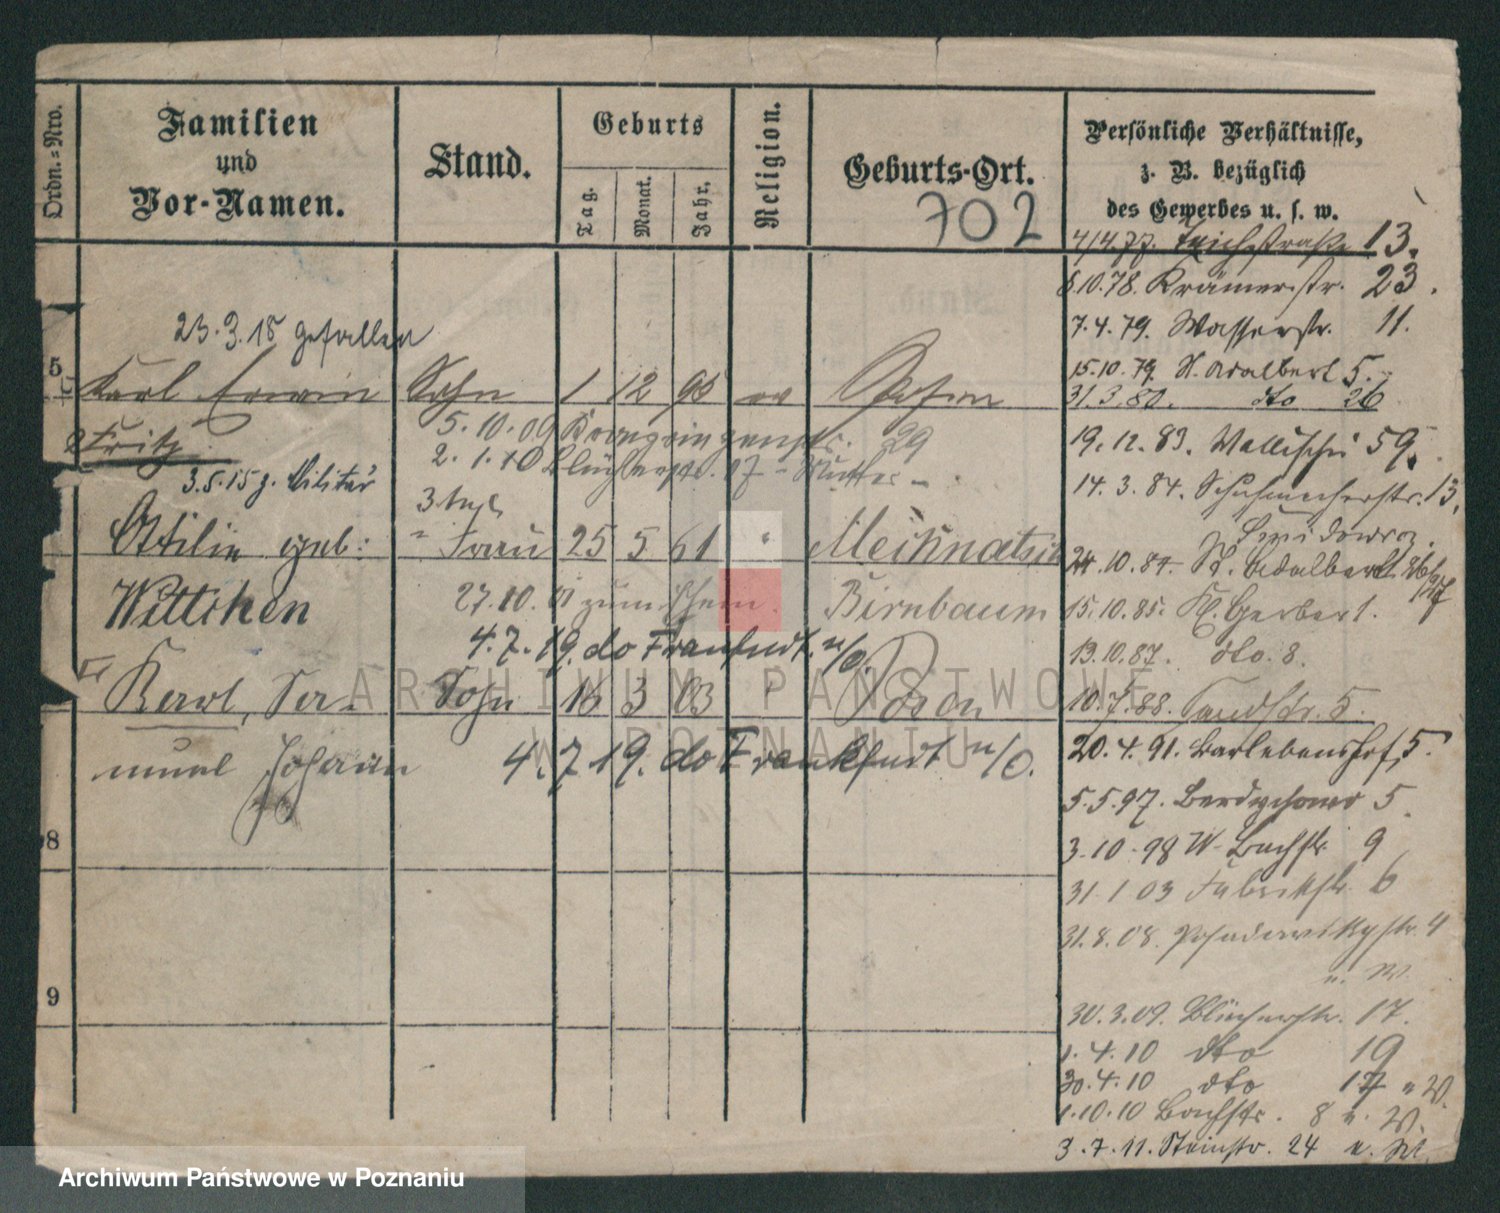 Ordn.=Nro.
Familien
und
Vor-Namen.
Stand.
Geburts
Tag.
Monat.
Jahr.
Religion.
Geburts-Ort.
702
Persönliche Verhältnisse,
z. B. bezüglich
des Gewerbes u. s. w.
23.3.18 gefallen
5
Karl Erwin Sohn 1 12 95 ev Posen
Fritz
5.10.09 Kronprinzenstr. 29
2.1.10 Blücherstr. 17 - Mutter -
3.5.15 z. Militär
Ottilie geb: Frau 25 5 61 Meschnatsia
Wittchen
Birnbaum
27.10. zum Ehem.
4.7.19. do Frankfudt. n/O.
Karl, Sohn 16 3 03 Posen
Johann
4.7.19. do Frankfudt n/O.
8
9
4/4.77. Teichstraße 13.
8.10.78. Krämerstr. 23.
7.4.79. Wasserstr. 11.
15.10.79. St. Adalbert 5.
31.3.80. dto 26
19.12.83. Wallischei 59.
14.3.84. Schuhmacherstr. 13.
24.10.84. St. Adalbert
15.10.85. Kl. Gerberst.
13.10.87. dto. 8.
10.7.88. Sandstr. 5.
20.4.91. Barlebenshof 5.
5.5.97. Berdychowo 5
3.10.98 W. Bachstr. 9
31.1.03 Fabrikstr. 6
31.8.08. Posadowskystr. 4
u. W.
30.3.09. Blücherstr. 17.
1.4.10 dto 19
30.4.10 dto 17 u W.
1.10.10 Bachstr. 8 u. W.
3.7.11. Steinstr. 24 u. W.
ARCHIWUM PAŃSTWOWE
W POZNANIU
Archiwum Państwowe w Poznaniu